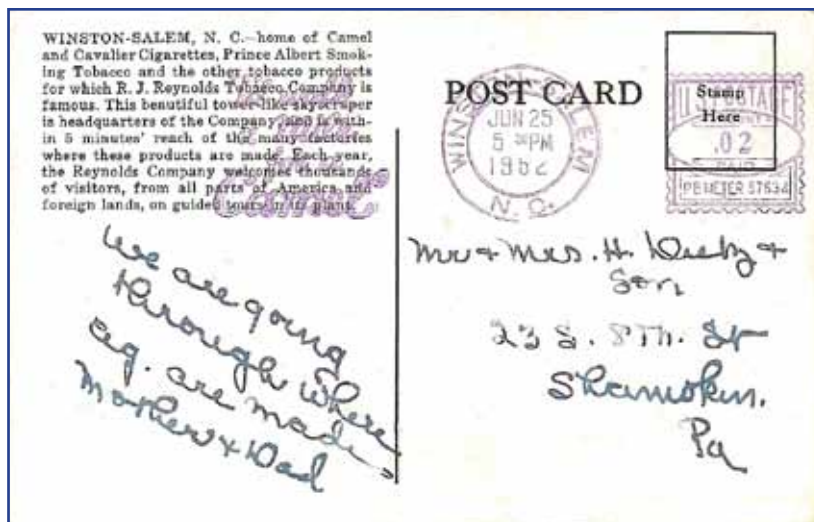 WINSTON-SALEM, N. C.—home of Camel
and Cavalier Cigarettes, Prince Albert Smok-
ing Tobacco and the other tobacco products
for which R. J. Reynolds Tobacco Company is
famous. This beautiful tower-like skyscraper
is headquarters of the Company, and is with-
in 5 minutes' reach of the many factories
where these products are made. Each year,
the Reynolds Company welcomes thousands
of visitors, from all parts of America and
foreign lands, on guided tours in its plant.
We are going
through where
cig. are made
Mother & Dad
POST CARD
WINSTON-SALEM
JUN 25
5 30 PM
1952
N. C.
Stamp
Here
U.S. POSTAGE
.02
PAID
PB METER
Mr & Mrs. H. &
Son
23 S. 8th. St
Shamokin,
Pa